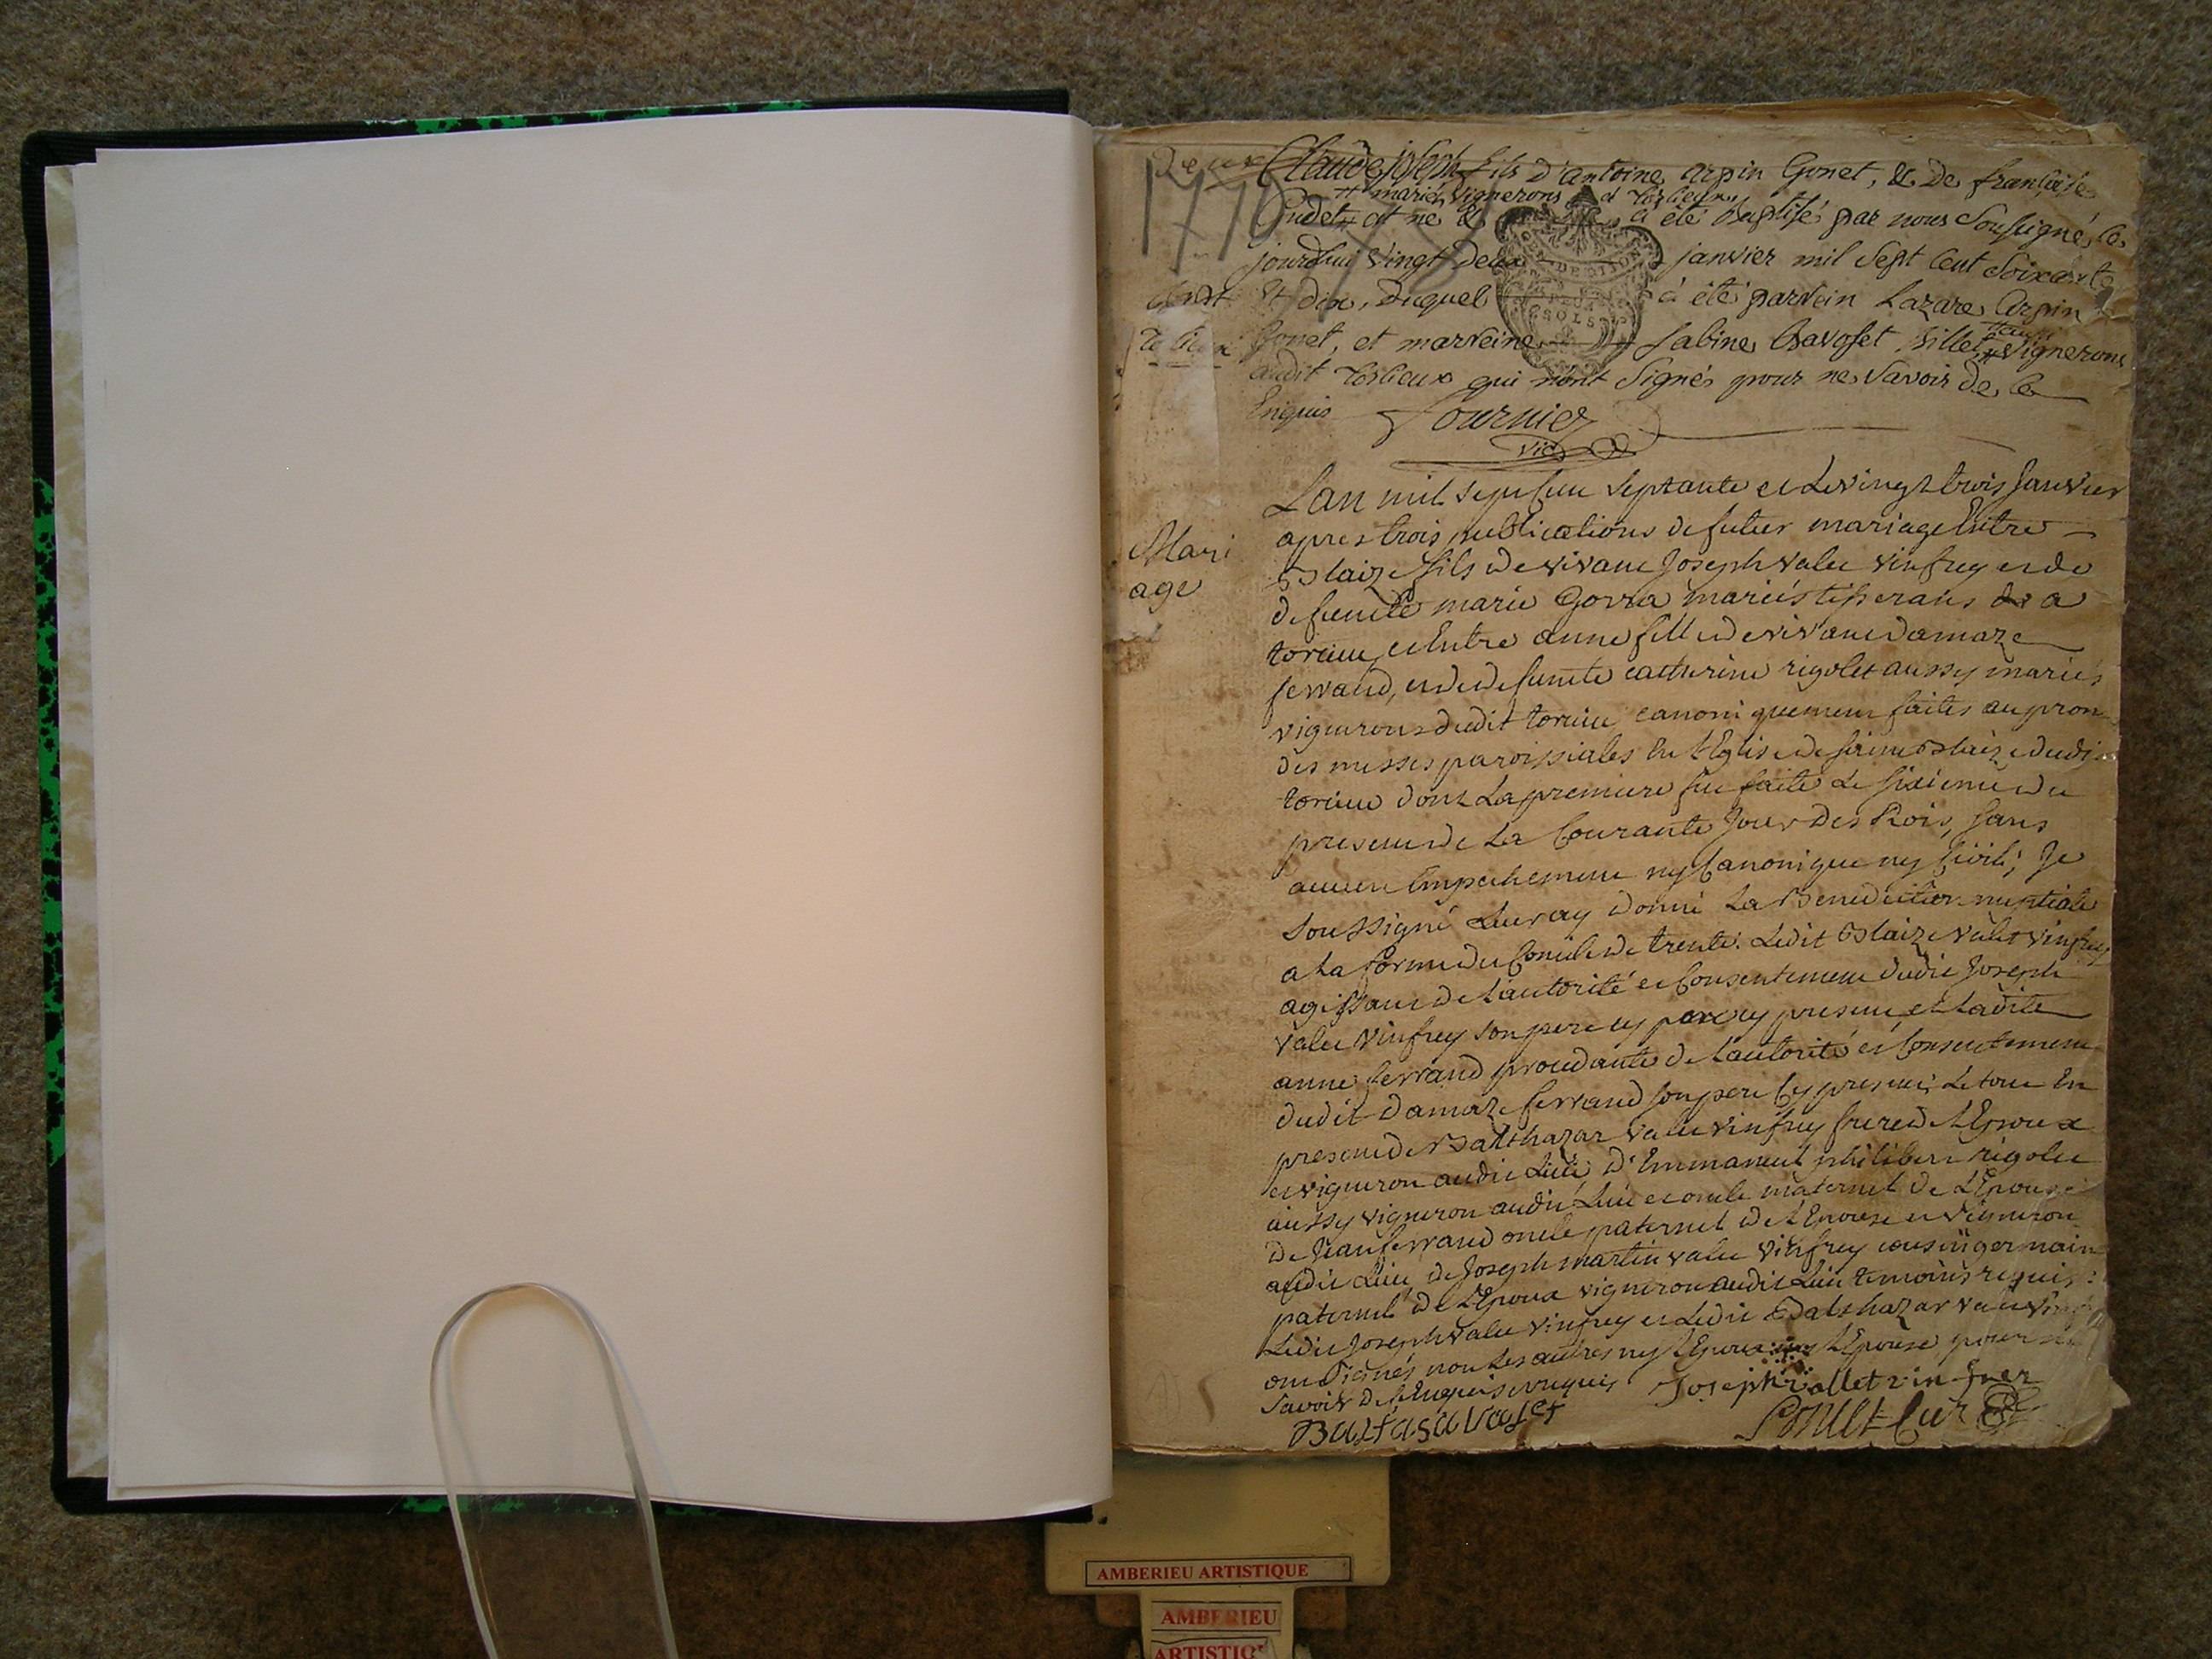 Claude joseph fils d'antoine Arpin Gonet, & De francoise
# mariés vignerons a torcieux
Cudet # est né & a été baptisé par nous Soussigné, ce
jourdhui vingt deux janvier mil Sept Cent Soixante
et dix, Duquel a été parrein Lazare Arpin
Gonet, et marreine Sabine Chavoset fille # vignerons
audit torcieux qui n'ont Signés pour ne Savoir de ce
Enquis Fournier
vic
Mari
age
Lan mil sept cent septante et Le vingt trois Janvier
apres trois publications de futur mariage Entre
Blaize fils de vivant Joseph valet vinfrey et de
defuncte marie Gorra mariés tisserans a
torcieu, et Entre anne fille de vivant damaze
ferrand, et de defuncte catherine rigolet aussy mariés
vignerons dudit torcieu canoniquement faites au pron
des messes paroissiales En L'Eglise de saint Blaize dudi
torcieu dont La premiere fut faite Le sixieme du
present de La Courante Jour des Rois, sans
aucun Empechement ny Canonique ny Civil; Je
soussigné Leur ay donné La Benediction nuptiale
a La forme du Concile de trente. Ledit Blaize valet vinfrey
agissant de L'autorité et Consentement dudit Joseph
valet vinfrey son pere cy present, et Ladite
anne ferrand procedante de L'autorité et Consentement
dudit damaze ferrand son pere Cy present; Le tout En
presence de Balthazar valet vinfrey frere de L'Epoux
et vigneron audit Lieu, d'Emmanuel philibert rigolet
aussy vigneron audit Lieu et oncle maternel de L'Epouse
de Jean ferrand oncle paternel de L'Epouse et vigneron
audit Lieu, de Joseph martin valet vinfrey cousin germain
paternel de L'Epoux vigneron audit Lieu temoins requis:
Ledit Joseph valet vinfrey et Ledit Balthazar valet
ont signés non Les autres ny L'Epoux ny L'Epouse pour ne
savoir de ce Enquis et requis Joseph vallet vin frer
Baltasa valet Cur
AMBERIEU ARTISTIQUE
AMBERIEU
ARTISTIQ